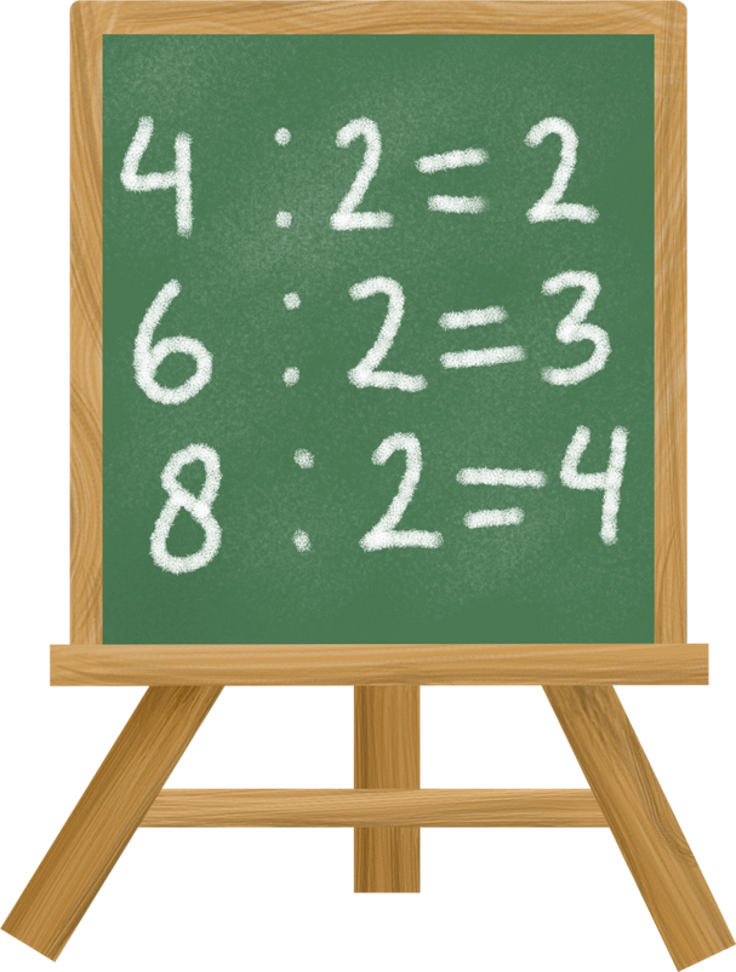 4 : 2 = 2
6 : 2 = 3
8 : 2 = 4